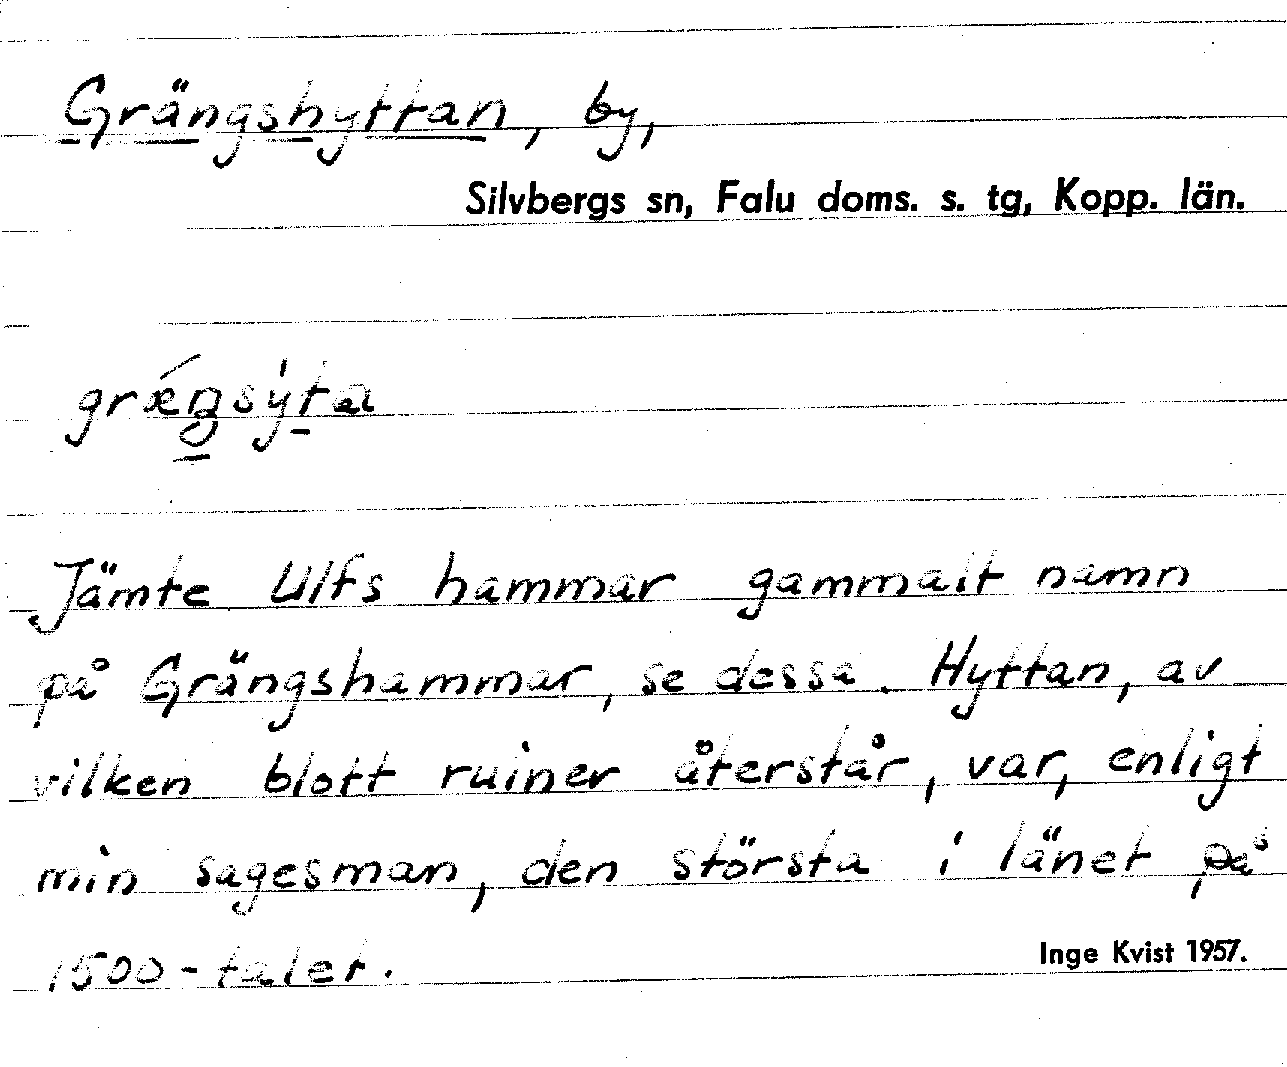 Grängshyttan, by,
Silvbergs sn, Falu doms. s. tg, Kopp. län.
grǽŋsy̍ta
Jämte Ulfs hammar gammalt namn
på Grängshammar, se dessa. Hyttan, av
vilken blott ruiner återstår, var, enligt
min sagesman, den största i länet på
1500-talet.
Inge Kvist 1957.